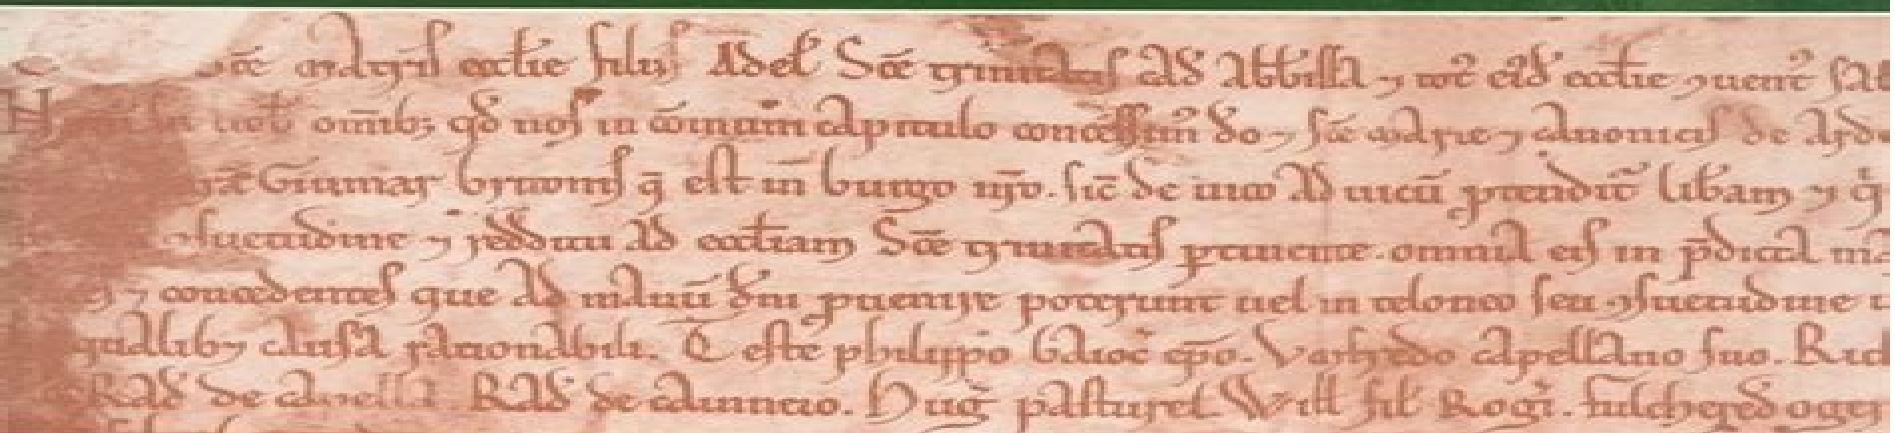 sc̄e matris eccl̄ie filiis Adel' Sc̄e trinitatis cad' abb̄issa ⁊ tot' ei'd' eccl̄ie ꝯuent' sal
uob' omīb; qd̄ nos in cōmuni capitulo concessim' do ⁊ sc̄e marie ⁊ canonicis de Ard
Guimar britonis q̄ est in burgo nr̄o. sic̄ de uico ad uicū p̄tendit' lib̄am ⁊ q'
ꝯsuetudine ⁊ redditu ad eccl̄iam Sc̄e trinitatis ꝑtinente. omnia eis in p̄dicta
⁊ concedentes que ad manū dn̄i ꝑuenire poterunt uel in teloneo seu ꝯsuetudine
qualib; causa rationabili. Teste philippo baioc' ep̄o. capellano suo. Ric
Rad' de Rad' de cauneto. Hug' pasturel Will' fil' Rog'i. fulchered oger